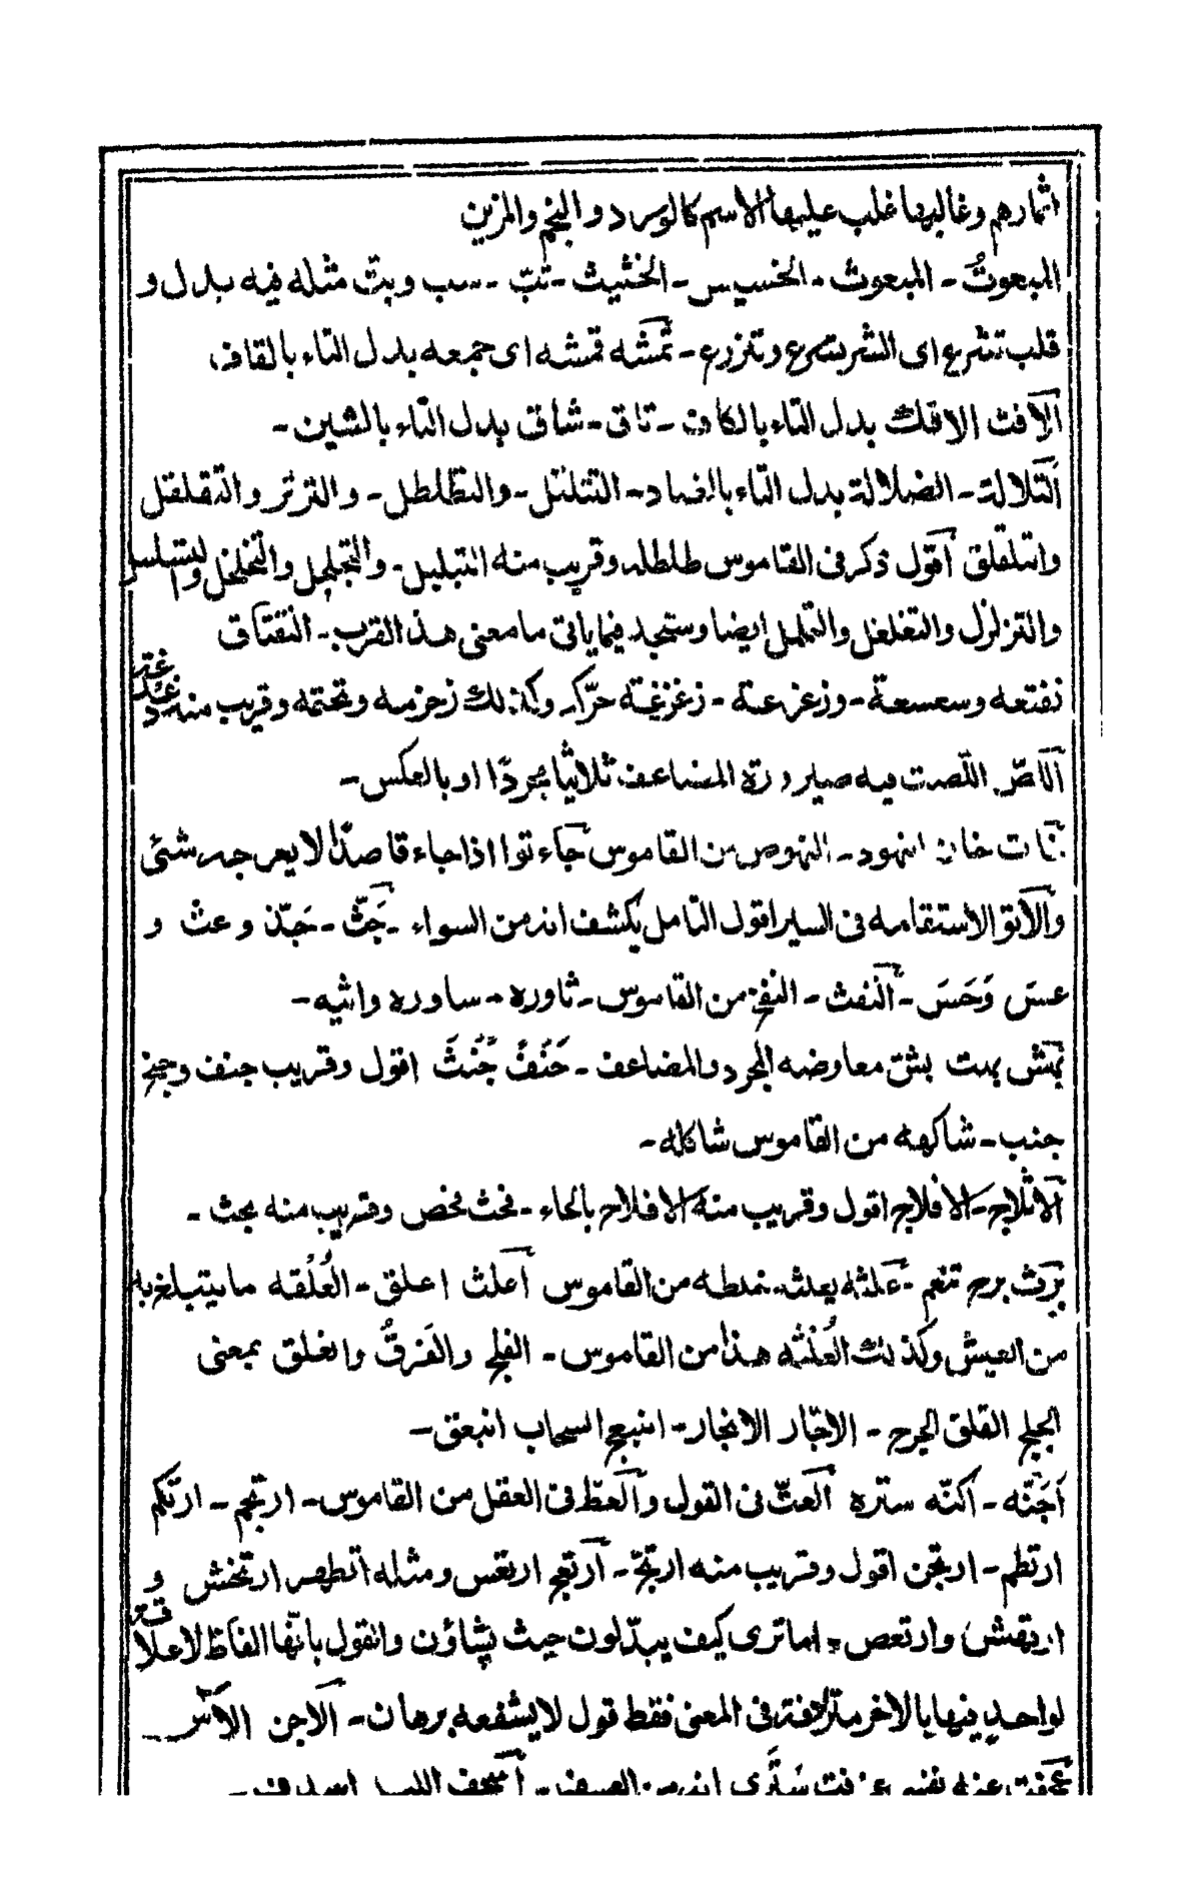 اثمارهم وغالبها غلب عليها الاسم كالورد والنجم والمزين
المبعوتُ - المبعوث - الخسيس - الخثيث - تبّ - سب وبتّ مثله فيه بدل و
قلب تشرع اى الشر يتسرع وتنزرع - تمشه قمشه اى جمعه بدل التاء بالقاف
الآفت الافك بدل التاء بالكاف - تاق - شاق بدل التاء بالشين -
التلالة - الضلالة بدل التاء بالضاد - التتلتل - والتطلطل - والترتر والتقلقل
واتلقلق اقول ذكر فى القاموس طلطله وقريب منه التبليل - والتجلجل والتخلخل والتسلسل
والتزلزل والتغلغل والتململ ايضا وستجد فيما ياتى ما معنى هذ القرب - النقتاق
نفتعه وسعسعة - وزعزعة - زغزغة حرّكه وكذلك زحزمه وتحتمه وقريب منه
الاصّ اللصت فيه صيرورة المضاعف ثلاثيا مجردًا او بالعكس -
خان - من القاموس جاء توا اذا جاء قاصدًا لا يعرجه شئى
والاتو الاستقامه فى السير اقول التامل يكشف انه من السواء - جَثّ - جَذّ وعث و
عسَ وَحَسَ - النفث - النفخ من القاموس - ثاوره - ساوره واثيه -
بشق معارضه المجرد والمضاعف - حَنَفَ جُنَثَ اقول وقريب جنف وجنح
جنب - شاكهه من القاموس شاكله -
الاثلاج - الافلاج اقول وقريب منه الافلاح بالحاء - فحث فحص وقريب منه بحث -
برث بره تنعم - علثه يعلثه خلطه من القاموس اعلث اعلق - العُلُقه ما يتبلغ به
من العيش وكذلك العُلثه هذا من القاموس - الفلج والفَرقُ والغلق بمعنى
الجلج القلق الجرح - الاجّار الانجار - انبعج السحاب انبعق -
اَجَنّه - اكنّه ستره العتّ فى القول والعظ فى العقل من القاموس - ارتجم - ارتكم
ارتطم - ارتجن اقول وقريب منه ارتجّ - ارتعج ارتعس ومثله ارتخش و
ارتقش وارتعص - اما ترى كيف يبدّلون حيث يشاؤن واتقول بانّها الفاظ لا علاقة
لواحد فيها بالاخر مترادفة فى المعنى فقط قول لا يشفعه برهان - الاجن الآسن